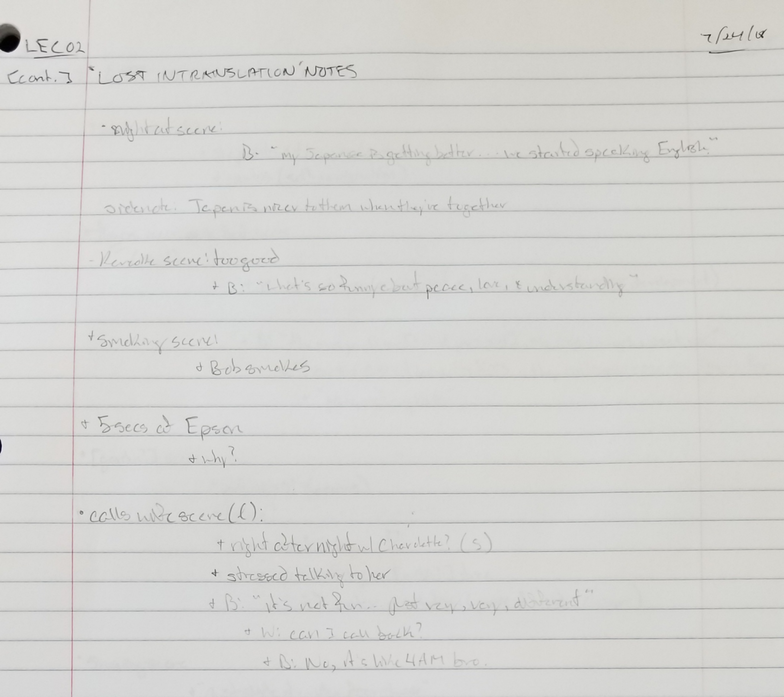 LEC02
7/24/18
[cont.] "LOST IN TRANSLATION" NOTES
· night out scene:
B: "my Japanese is getting better... we started speaking English"
Japan is nicer to them when they're together
- Karaoke scene: too good
+ B: "what's so funny about peace, love, & understanding"
+ Smoking scene:
+ Bob smokes
+ 5 secs of Epson
+ why?
· calls wife scene (L):
+ right after night w/ Charlotte? (S)
+ stressed talking to her
+ B: "it's not fun... just very, very, different"
+ W: can I call back?
+ B: No, it's like 4AM bro.